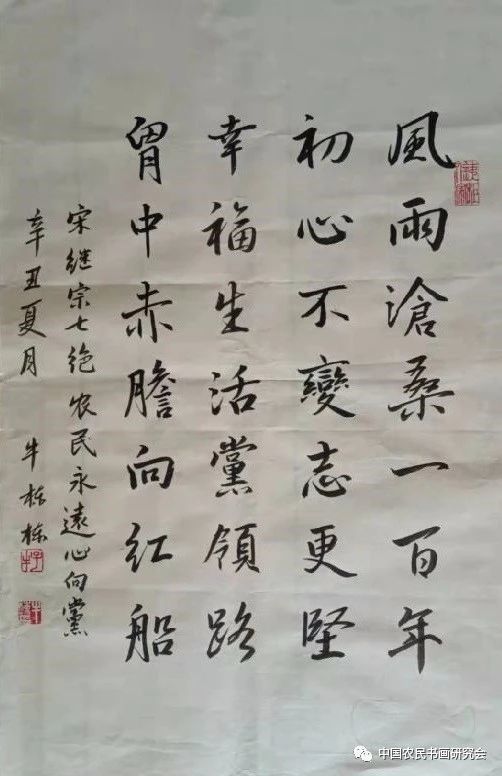 風雨滄桑一百年
初心不變志更堅
幸福生活黨領路
胷中赤膽向红船
宋继宗七绝 农民永遠心向黨
辛丑夏月 牛栋栋
中国农民书画研究会